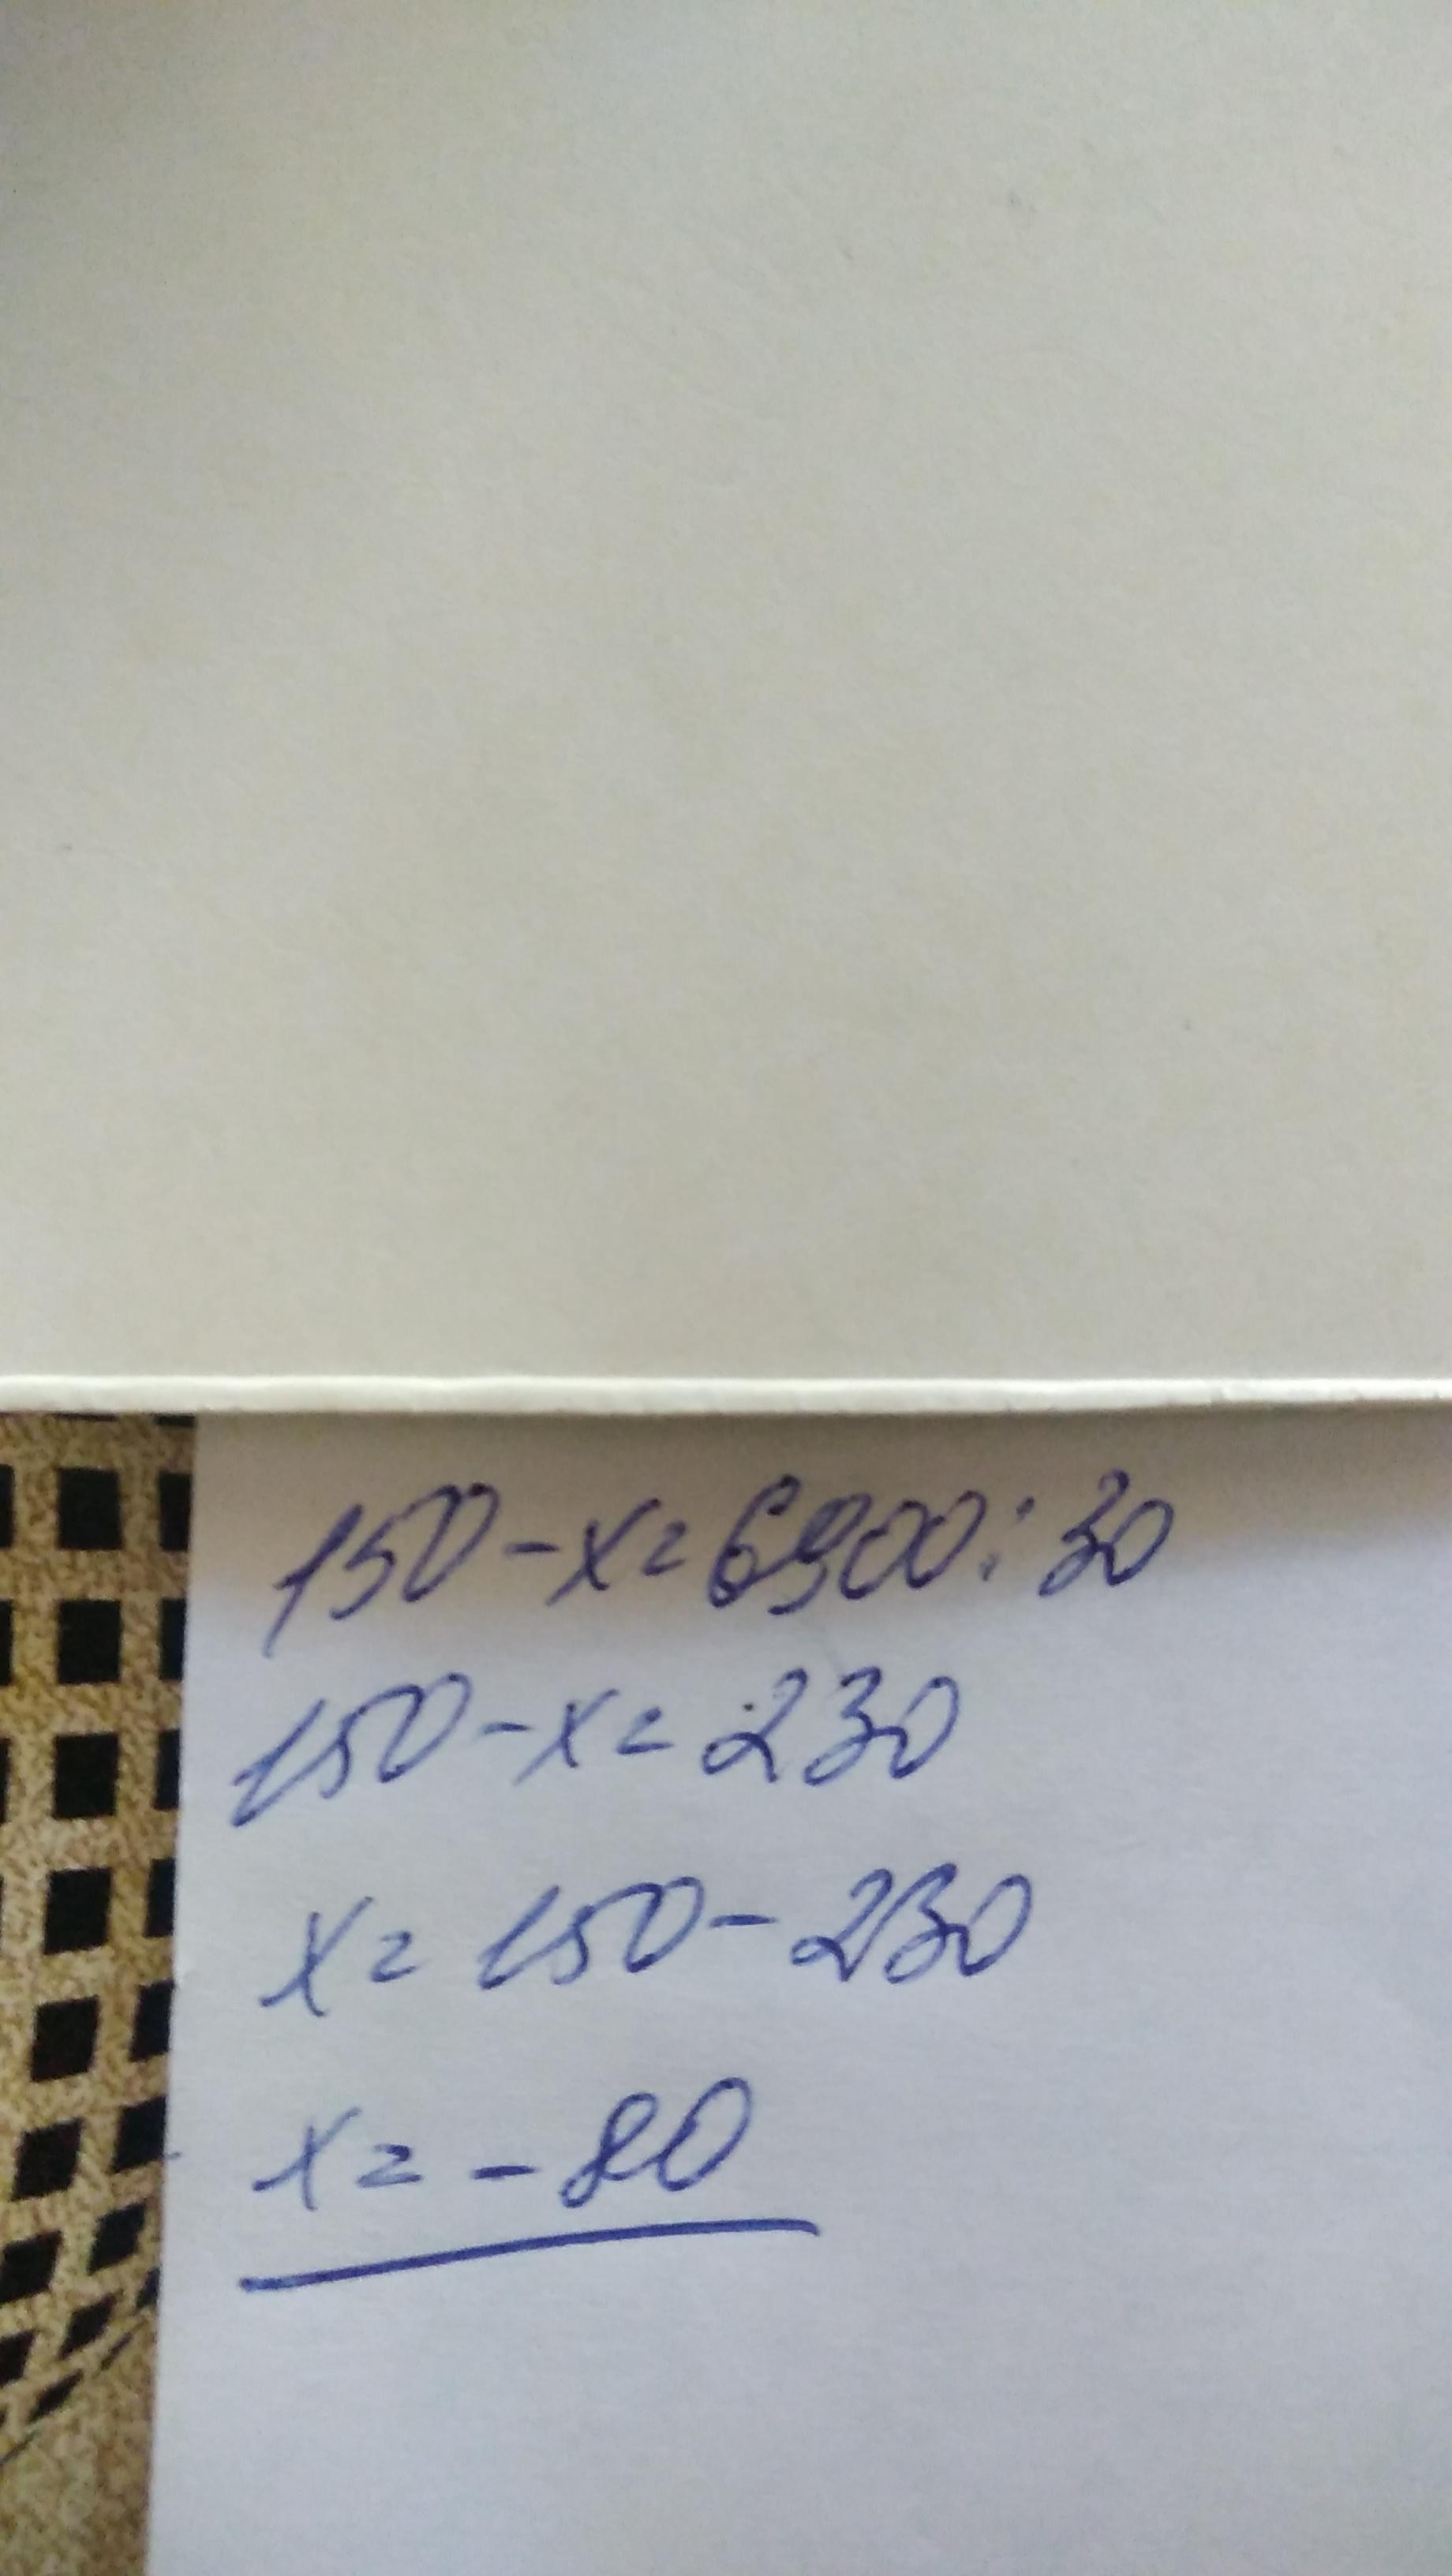 150-x=6900:30
150-x=230
x=150-230
x=-80